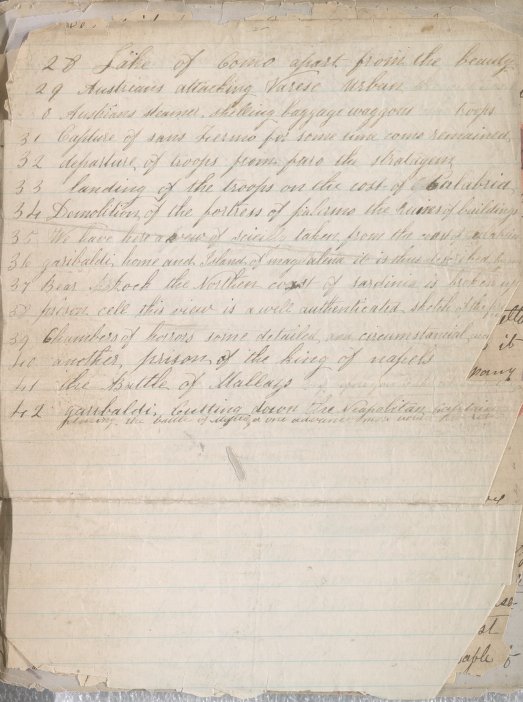 28 Lake of Como apart from the beauty
29 Austrians attacking Varese Urban
0 Austrians steamer shelling baggage waggons troops
31 Capture of sans fiermo for some time como remained
32 departure of troops from faro the stratigem
33 landing of the troops on the cost of Calabria
34 Demolition of the fortress of palermo the ruins of buildings
35 We have here a view of taken from the
36 garibaldi home and Island of it is thus described
37 Bear Rock the Northern coast of sardinia is broken up
38 prison cell this view is a well authenticated sketch of the
39 Chambers of horrors some detailed and circumstantial
40 another prison of the king of napels
41 the Battle of Mallays
42 garibaldi cutting down the Neapolitan
the battle of one advance
it
many
st